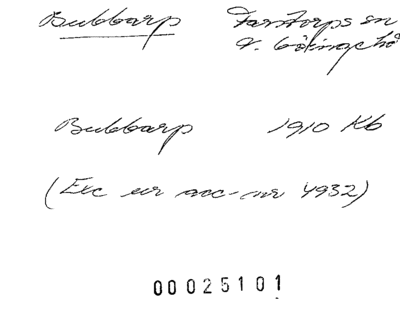 Bubbarp Farstorps sn
V. Göinge hd
Bubbarp 1910 Kb
(Exc ur acc-nr 4932)
00025101